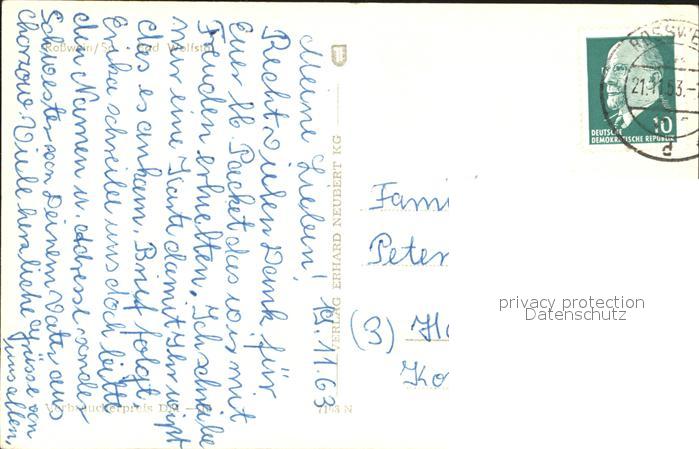 Meine Lieben! 19.11.63
Recht vielen Dank für
Euer lb. Packet das wir mit
Freuden erhielten. Ich schreibe
nur eine Karte damit Ihr wißt
das es ankam. Brief folgt.
Erika schreibe uns doch bitte
den Namen u. Adresse von der
Schwester von Deinem Vater aus
Chorzow. Viele herzliche Grüsse von
uns allen.
Roßwein/Sa. Bad Wolfstal
VERLAG ERHARD NEUBERT KG
Verbraucherpreis DM
7198 N
ROSSWE
21.11.63.-
d
10
DEUTSCHE
DEMOKRATISCHE REPUBLIK
Fami
Peter
(3) Ha
Ko
privacy protection
Datenschutz